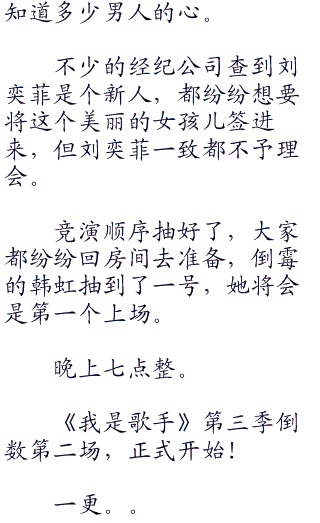 知道多少男人的心。
不少的经纪公司查到刘
奕菲是个新人，都纷纷想要
将这个美丽的女孩儿签进
来，但刘奕菲一致都不予理
会。
竞演顺序抽好了，大家
都纷纷回房间去准备，倒霉
的韩虹抽到了一号，她将会
是第一个上场。
晚上七点整。
《我是歌手》第三季倒
数第二场，正式开始！
一更。。